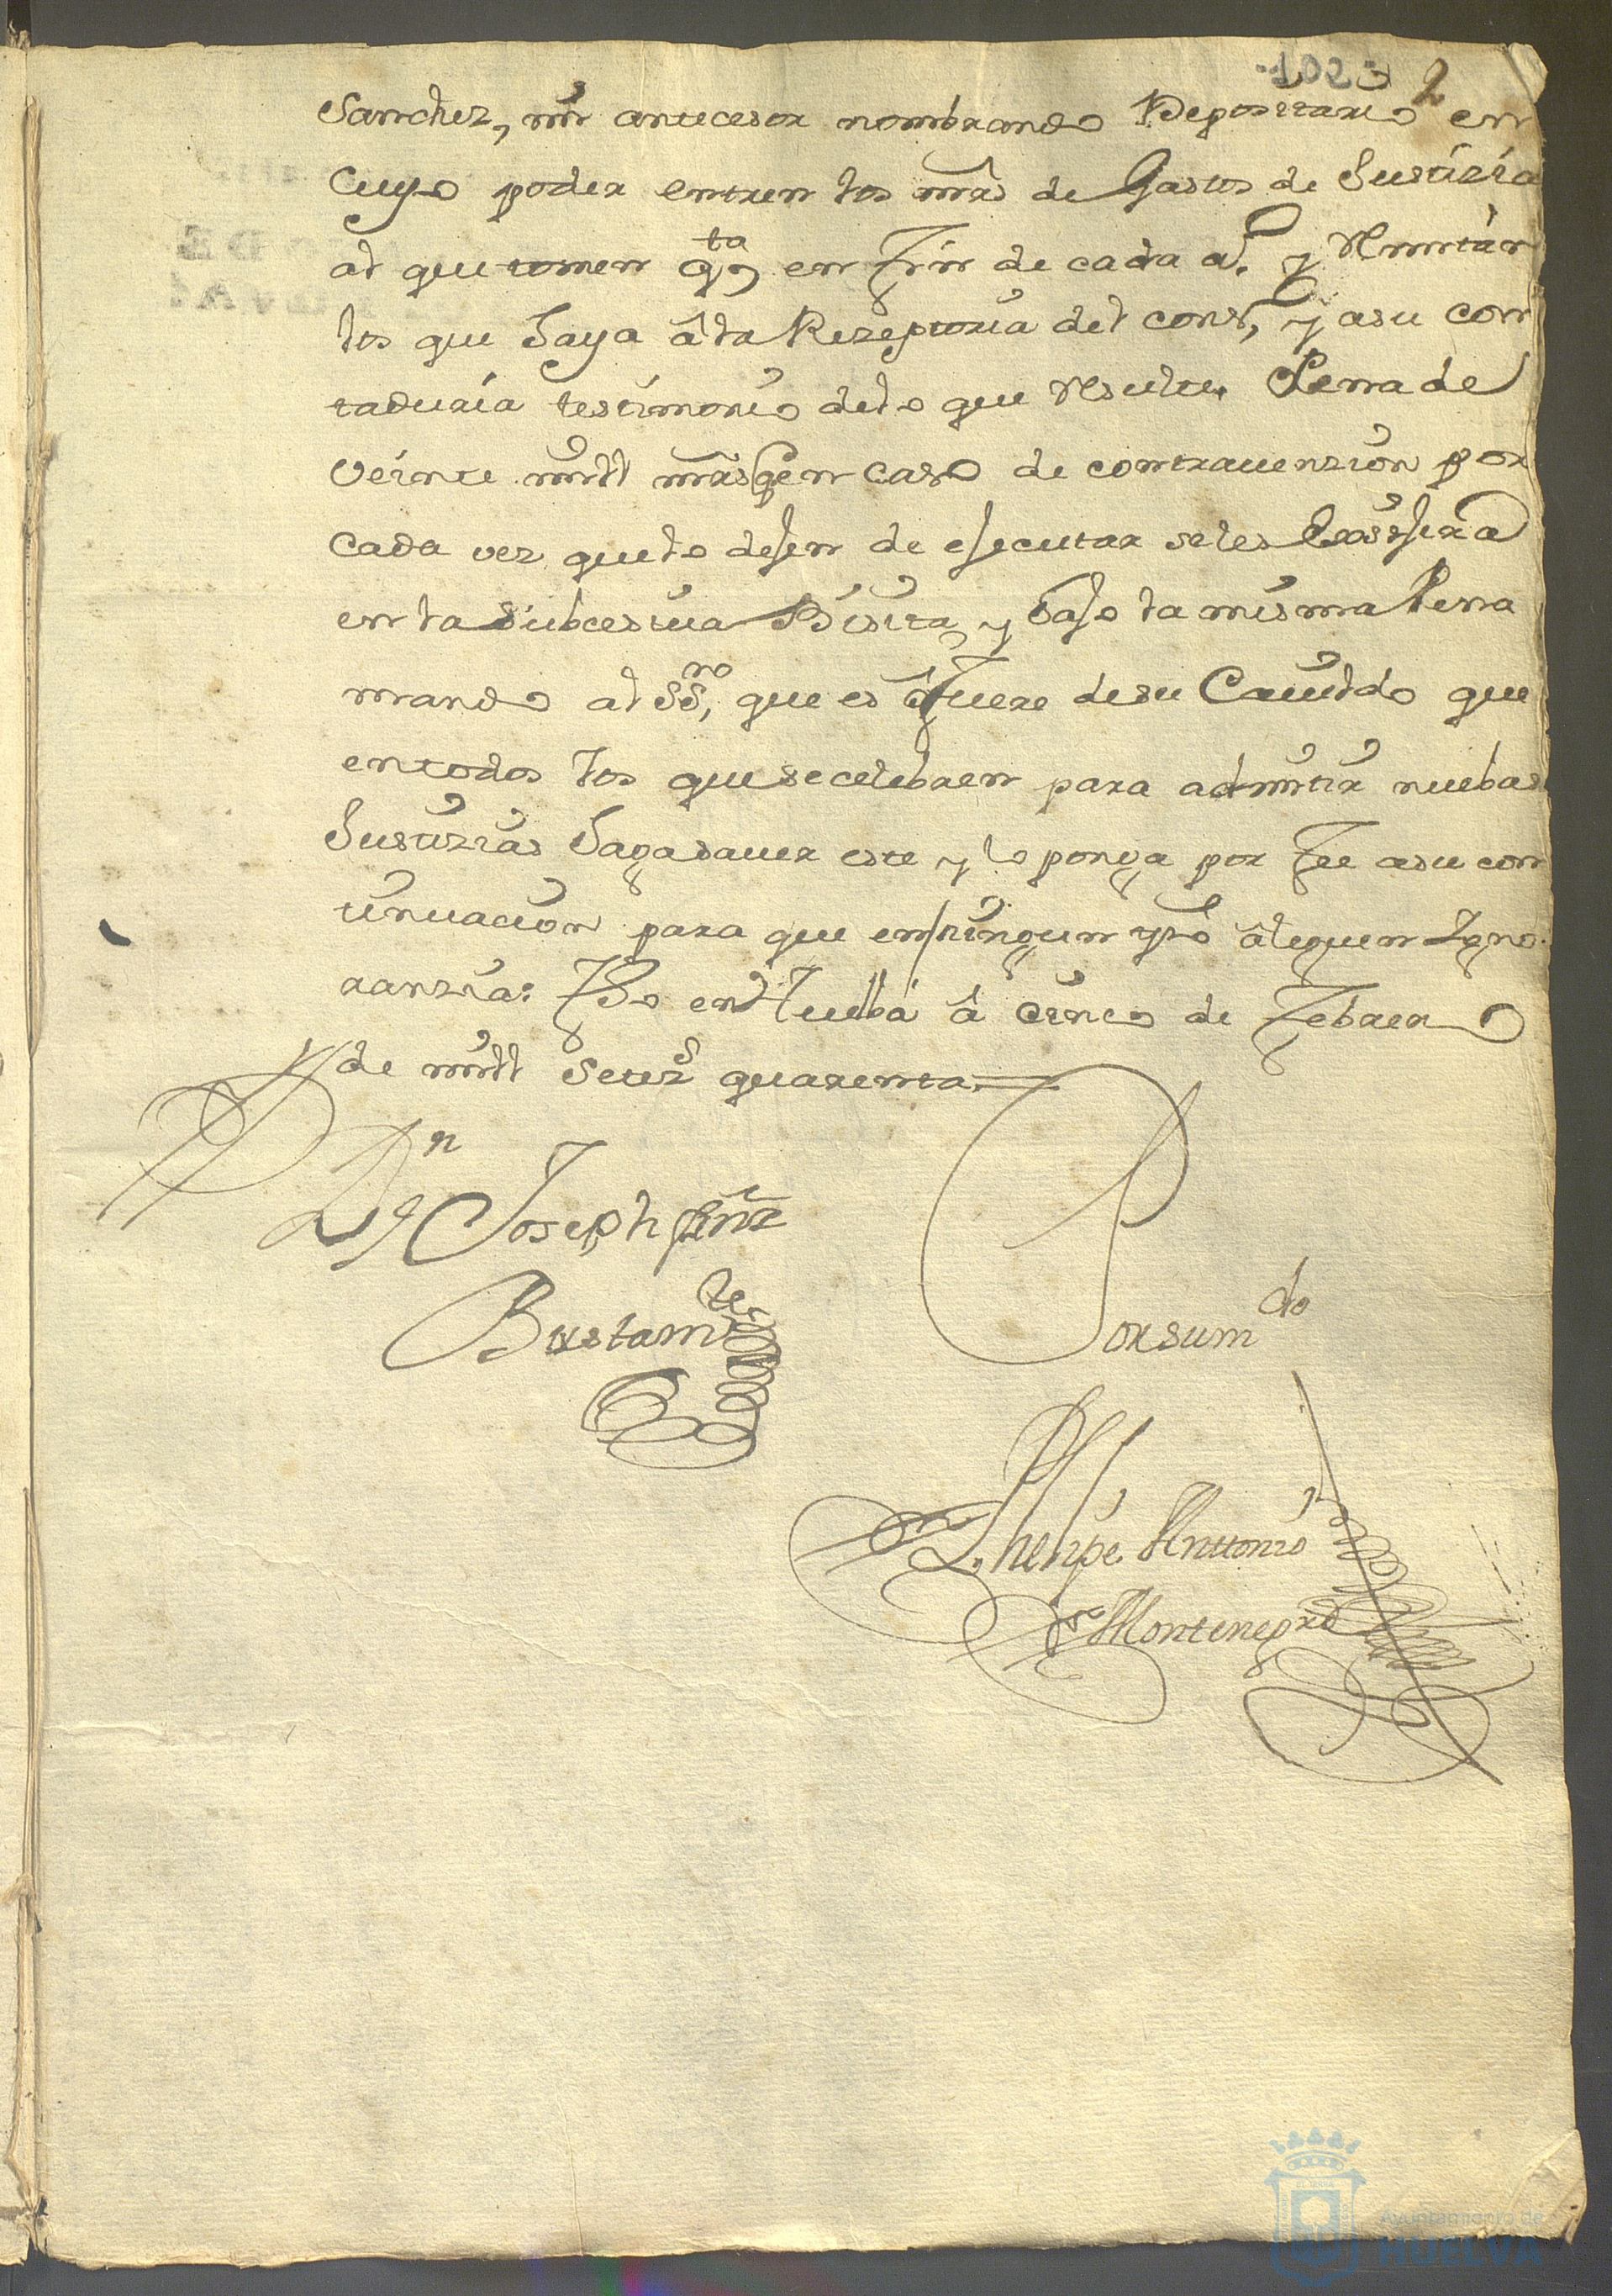 102 2
Sanchez, mi antecesor nombrando Depositario en
Cuyo poder entren los mrs de Gastos de Justizia
al que tomen qta en fin de cada a. y Remitan
los que haya â la Rezeptoria del cons, y a su con
taduria testimonio de lo que Resulte, Pena de
veinte mill mrs qe en caso de contravenzion por
cada vez que lo dejen de ejecutar se les exsijira
en la subcesiva Bisita, y bajo la misma Pena
mando al SSno, que es ô fuere de su Cavildo que
en todos los que se celebren para admitir nuebas
Justizias haga saver este y lo ponga por fee a su con
tinuacion para que en ningun tpo âleguen Igno
ranzia: fho en Huelba â cinco de febrero
de mill setezs quarenta
Dn Joseph frnz
Bustamte
Por su mdo
Phelipe Anttonio
Montenegro
Ayuntamiento de
HUELVA